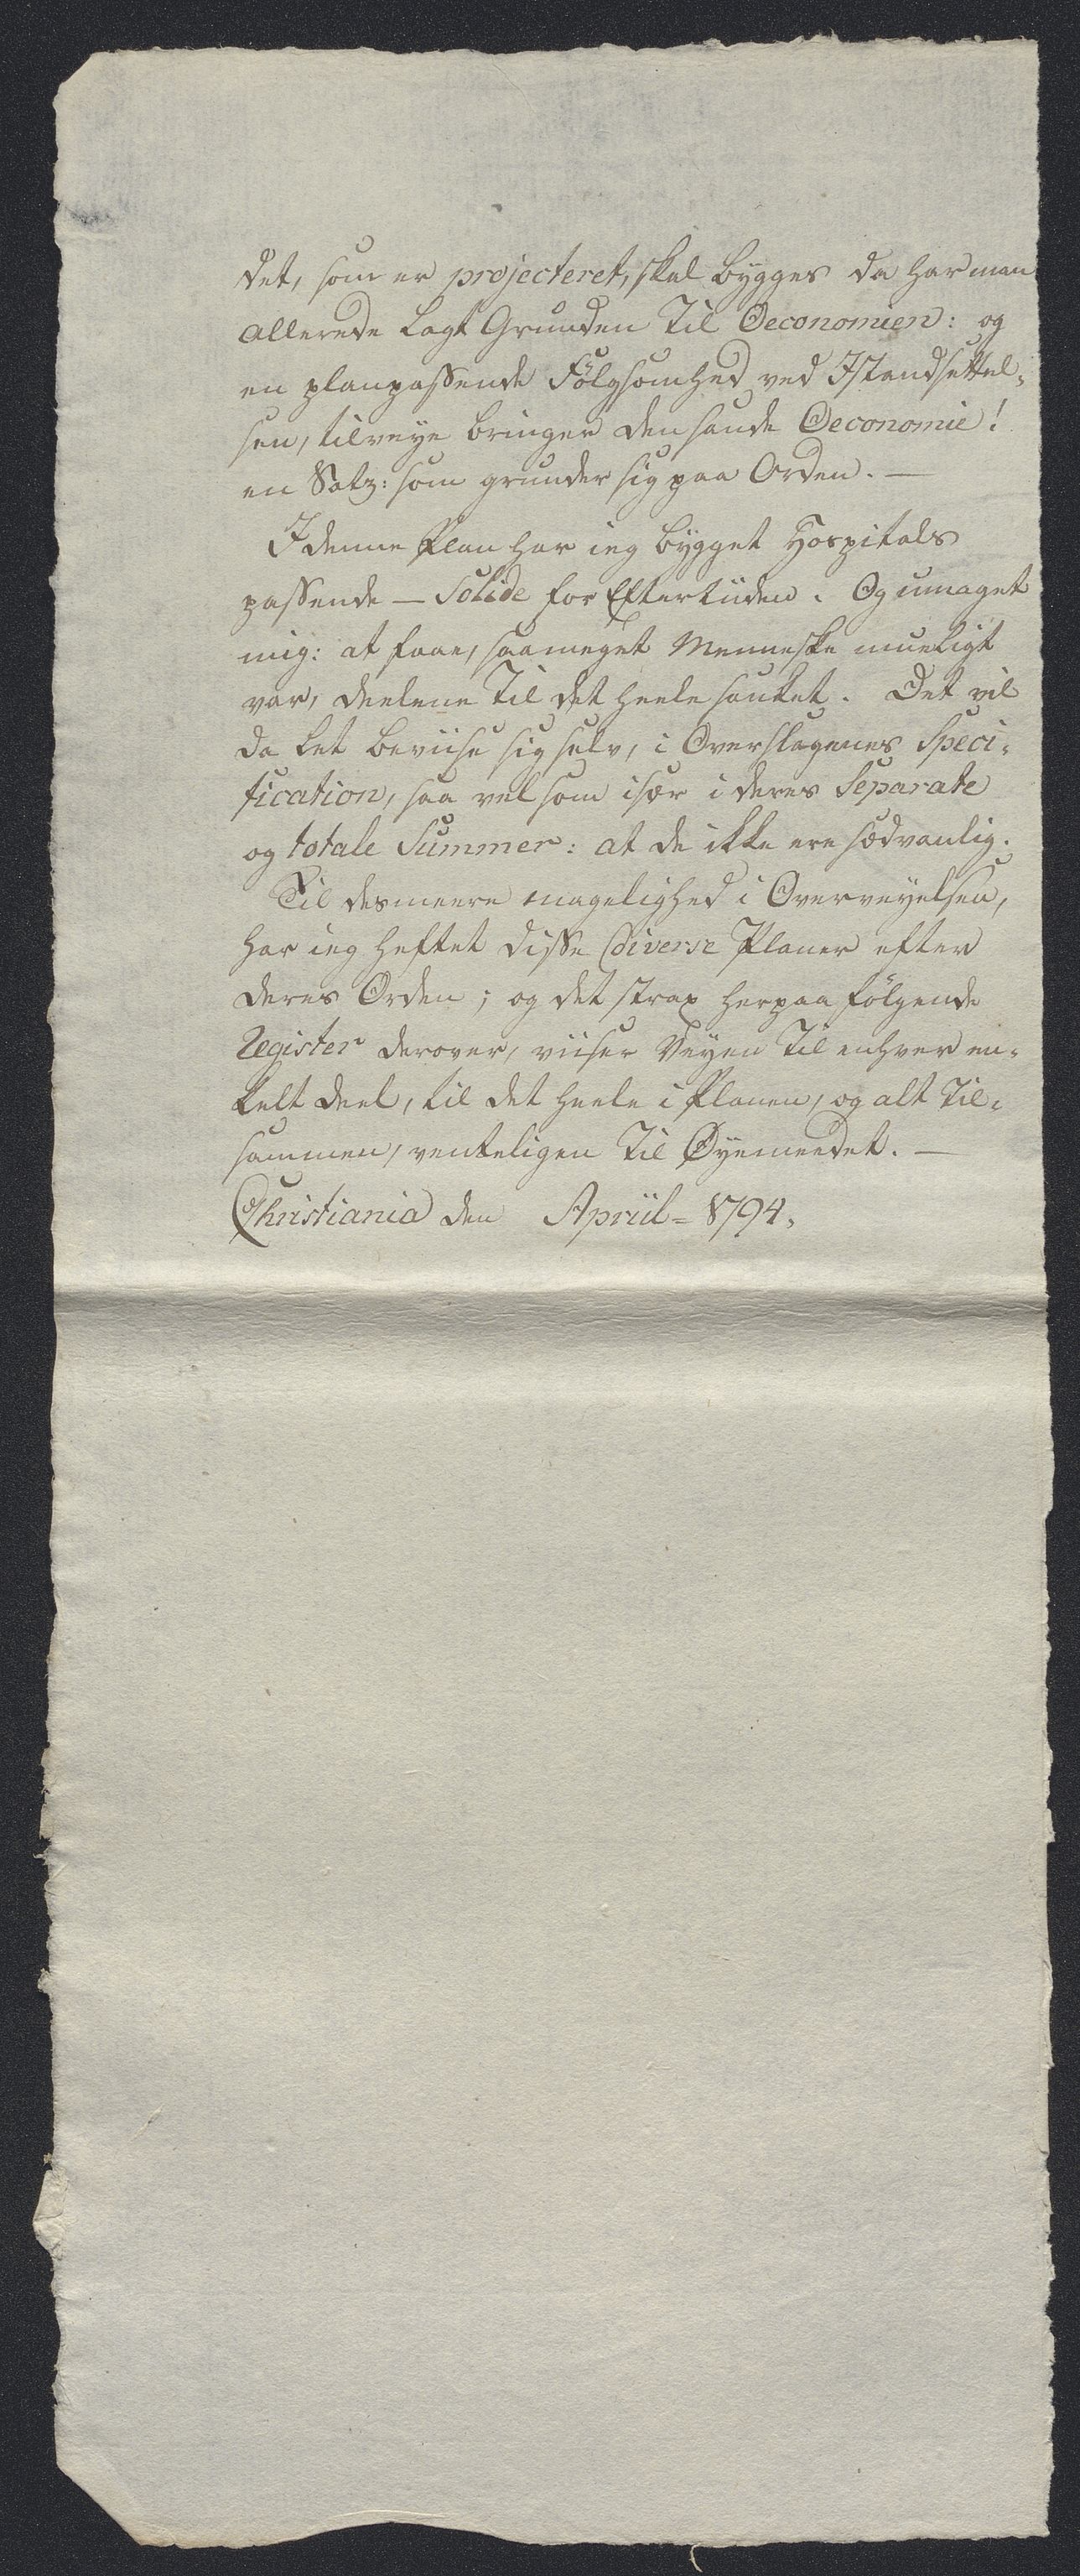 det, som er projecteret, skal bygges da har man
allerede lagt Grunden til Oeconomien: og
en planpassende Følgsomhed ved Istandsættel-
sen, tilveye bringer den sande Oeconomie!
en Satz: som grunder sig paa Orden. —
I denne Plan har ieg bygget Hospitals
passende — Solide for Eftertiiden. Og umaget
mig: at faae, saameget Menneske mueligt
var, deelene til det heele sanket. Det vil
da let beviise sig selv, i Overslagenes Speci-
fication, saa vel som især i deres Separate
og totale Summer: at de ikke ere sædvanlig.
Til desmeere magelighed i Overveyelsen,
har ieg heftet disse diverse Planer efter
deres Orden; og det strax herpaa følgende
Register derover, viiser Veyen til enhver en-
kelt deel, til det heele i Planen, og alt til-
sammen, venteligen til Øyemeedet. —
Christiania den Apriil = 1794.